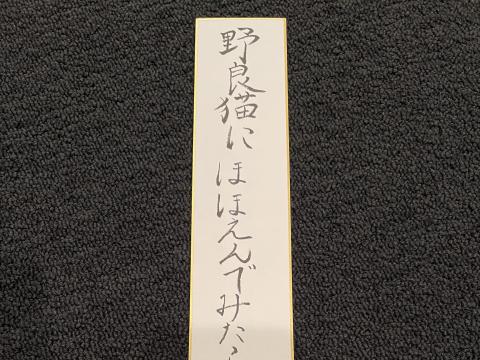 野良猫にほほえんでみた